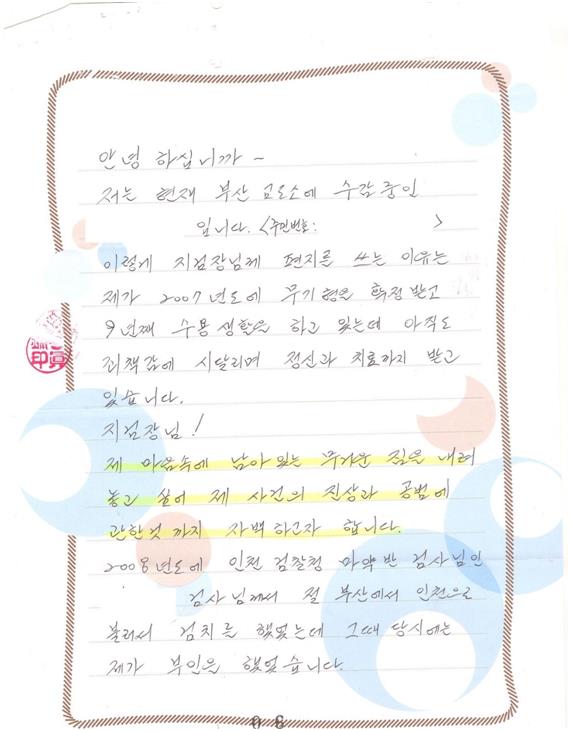 안녕 하십니까 ~
저는 현재 부산 교도소에 수감중인
입니다. <주민번호:            >
이렇게 지검장님께 편지를 쓰는 이유는
제가 2007년도에 무기형을 확정받고
9년째 수용생활을 하고 있는데 아직도
죄책감에 시달리며 정신과 치료까지 받고
있습니다.
지검장님!
제 마음속에 남아있는 무거운 짐을 내려
놓고 싶어 제 사건의 진상과 공범에
관한것 까지 자백하고자 합니다.
2008년도에 인천 검찰청 마약반 검사님인
검사님께서 절 부산에서 인천으로
불러서 검취를 했었는데 그때 당시에는
제가 부인을 했었습니다.